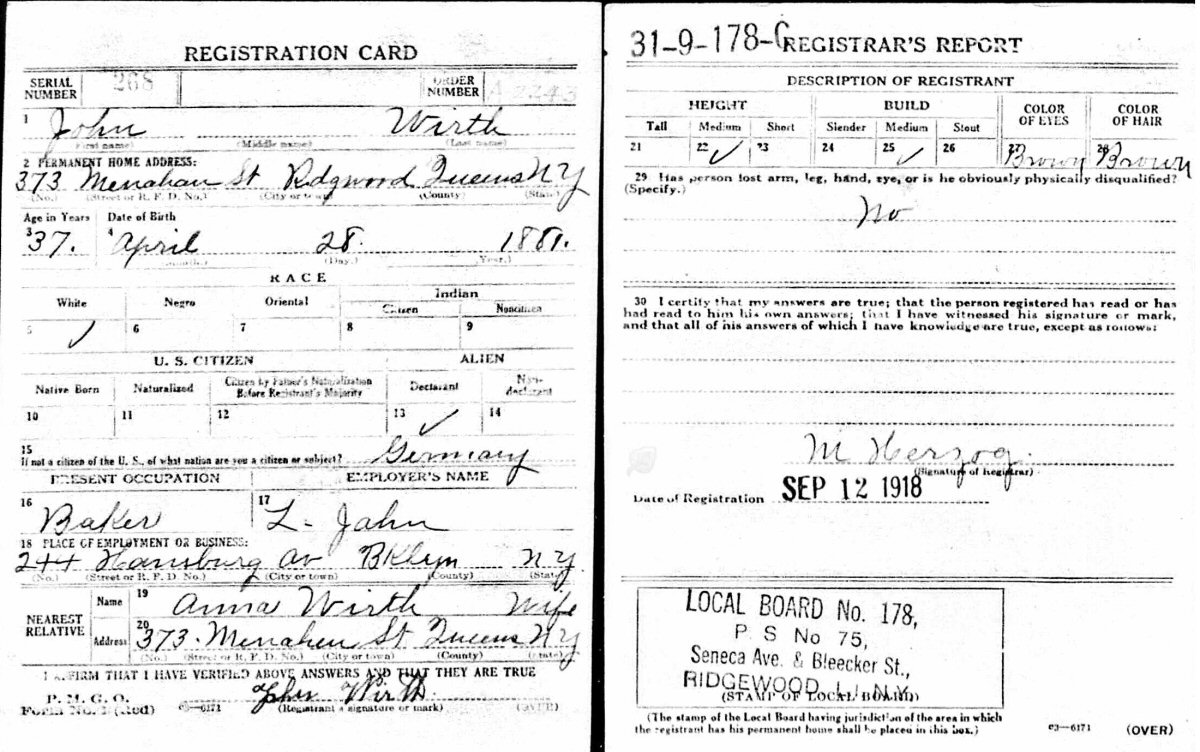 REGISTRATION CARD
SERIAL NUMBER 268 ORDER NUMBER A 2243
1 John Wirth
(First name) (Middle name) (Last name)
2 PERMANENT HOME ADDRESS:
373 Menahan St Ridgwood Queens N Y
(No.) (Street or R. F. D. No.) (City or town) (County) (State)
Age in Years Date of Birth
3 37. 4 April 28. 1881.
(Month.) (Day.) (Year.)
RACE
White Negro Oriental Indian
Citizen Noncitizen
5 ✓ 6 7 8 9
U. S. CITIZEN ALIEN
Native Born Naturalized Citizen by Father's Naturalization Before Registrant's Majority Declarant Non-declarant
10 11 12 13 ✓ 14
15
If not a citizen of the U. S., of what nation are you a citizen or subject? Germany
PRESENT OCCUPATION EMPLOYER'S NAME
16 Baker 17 L. Jahn
18 PLACE OF EMPLOYMENT OR BUSINESS:
244 Hamburg av BKlyn N Y
(No.) (Street or R. F. D. No.) (City or town) (County) (State)
NEAREST RELATIVE Name 19 Anna Wirth Wife
Address 20 373. Menahen St Queens N Y
(No.) (Street or R. F. D. No.) (City or town) (County) (State)
I AFFIRM THAT I HAVE VERIFIED ABOVE ANSWERS AND THAT THEY ARE TRUE
P. M. G. O.
Form No. 1 (Red) 03—6171 John Wirth (Registrant's signature or mark) (OVER)
31-9-178-C REGISTRAR'S REPORT
DESCRIPTION OF REGISTRANT
HEIGHT BUILD COLOR OF EYES COLOR OF HAIR
Tall Medium Short Slender Medium Stout
21 22 ✓ 23 24 25 ✓ 26 27 Brown 28 Brown
29 Has person lost arm, leg, hand, eye, or is he obviously physically disqualified?
(Specify.)
No
30 I certify that my answers are true; that the person registered has read or has
had read to him his own answers; that I have witnessed his signature or mark,
and that all of his answers of which I have knowledge are true, except as follows:
M Herzog.
(Signature of Registrar)
Date of Registration SEP 12 1918
LOCAL BOARD No. 178,
P S No 75,
Seneca Ave. & Bleecker St.,
RIDGEWOOD, L. I. N.Y.
(STAMP OF LOCAL BOARD)
(The stamp of the Local Board having jurisdiction of the area in which
the registrant has his permanent home shall be placed in this box.)
03—6171 (OVER)